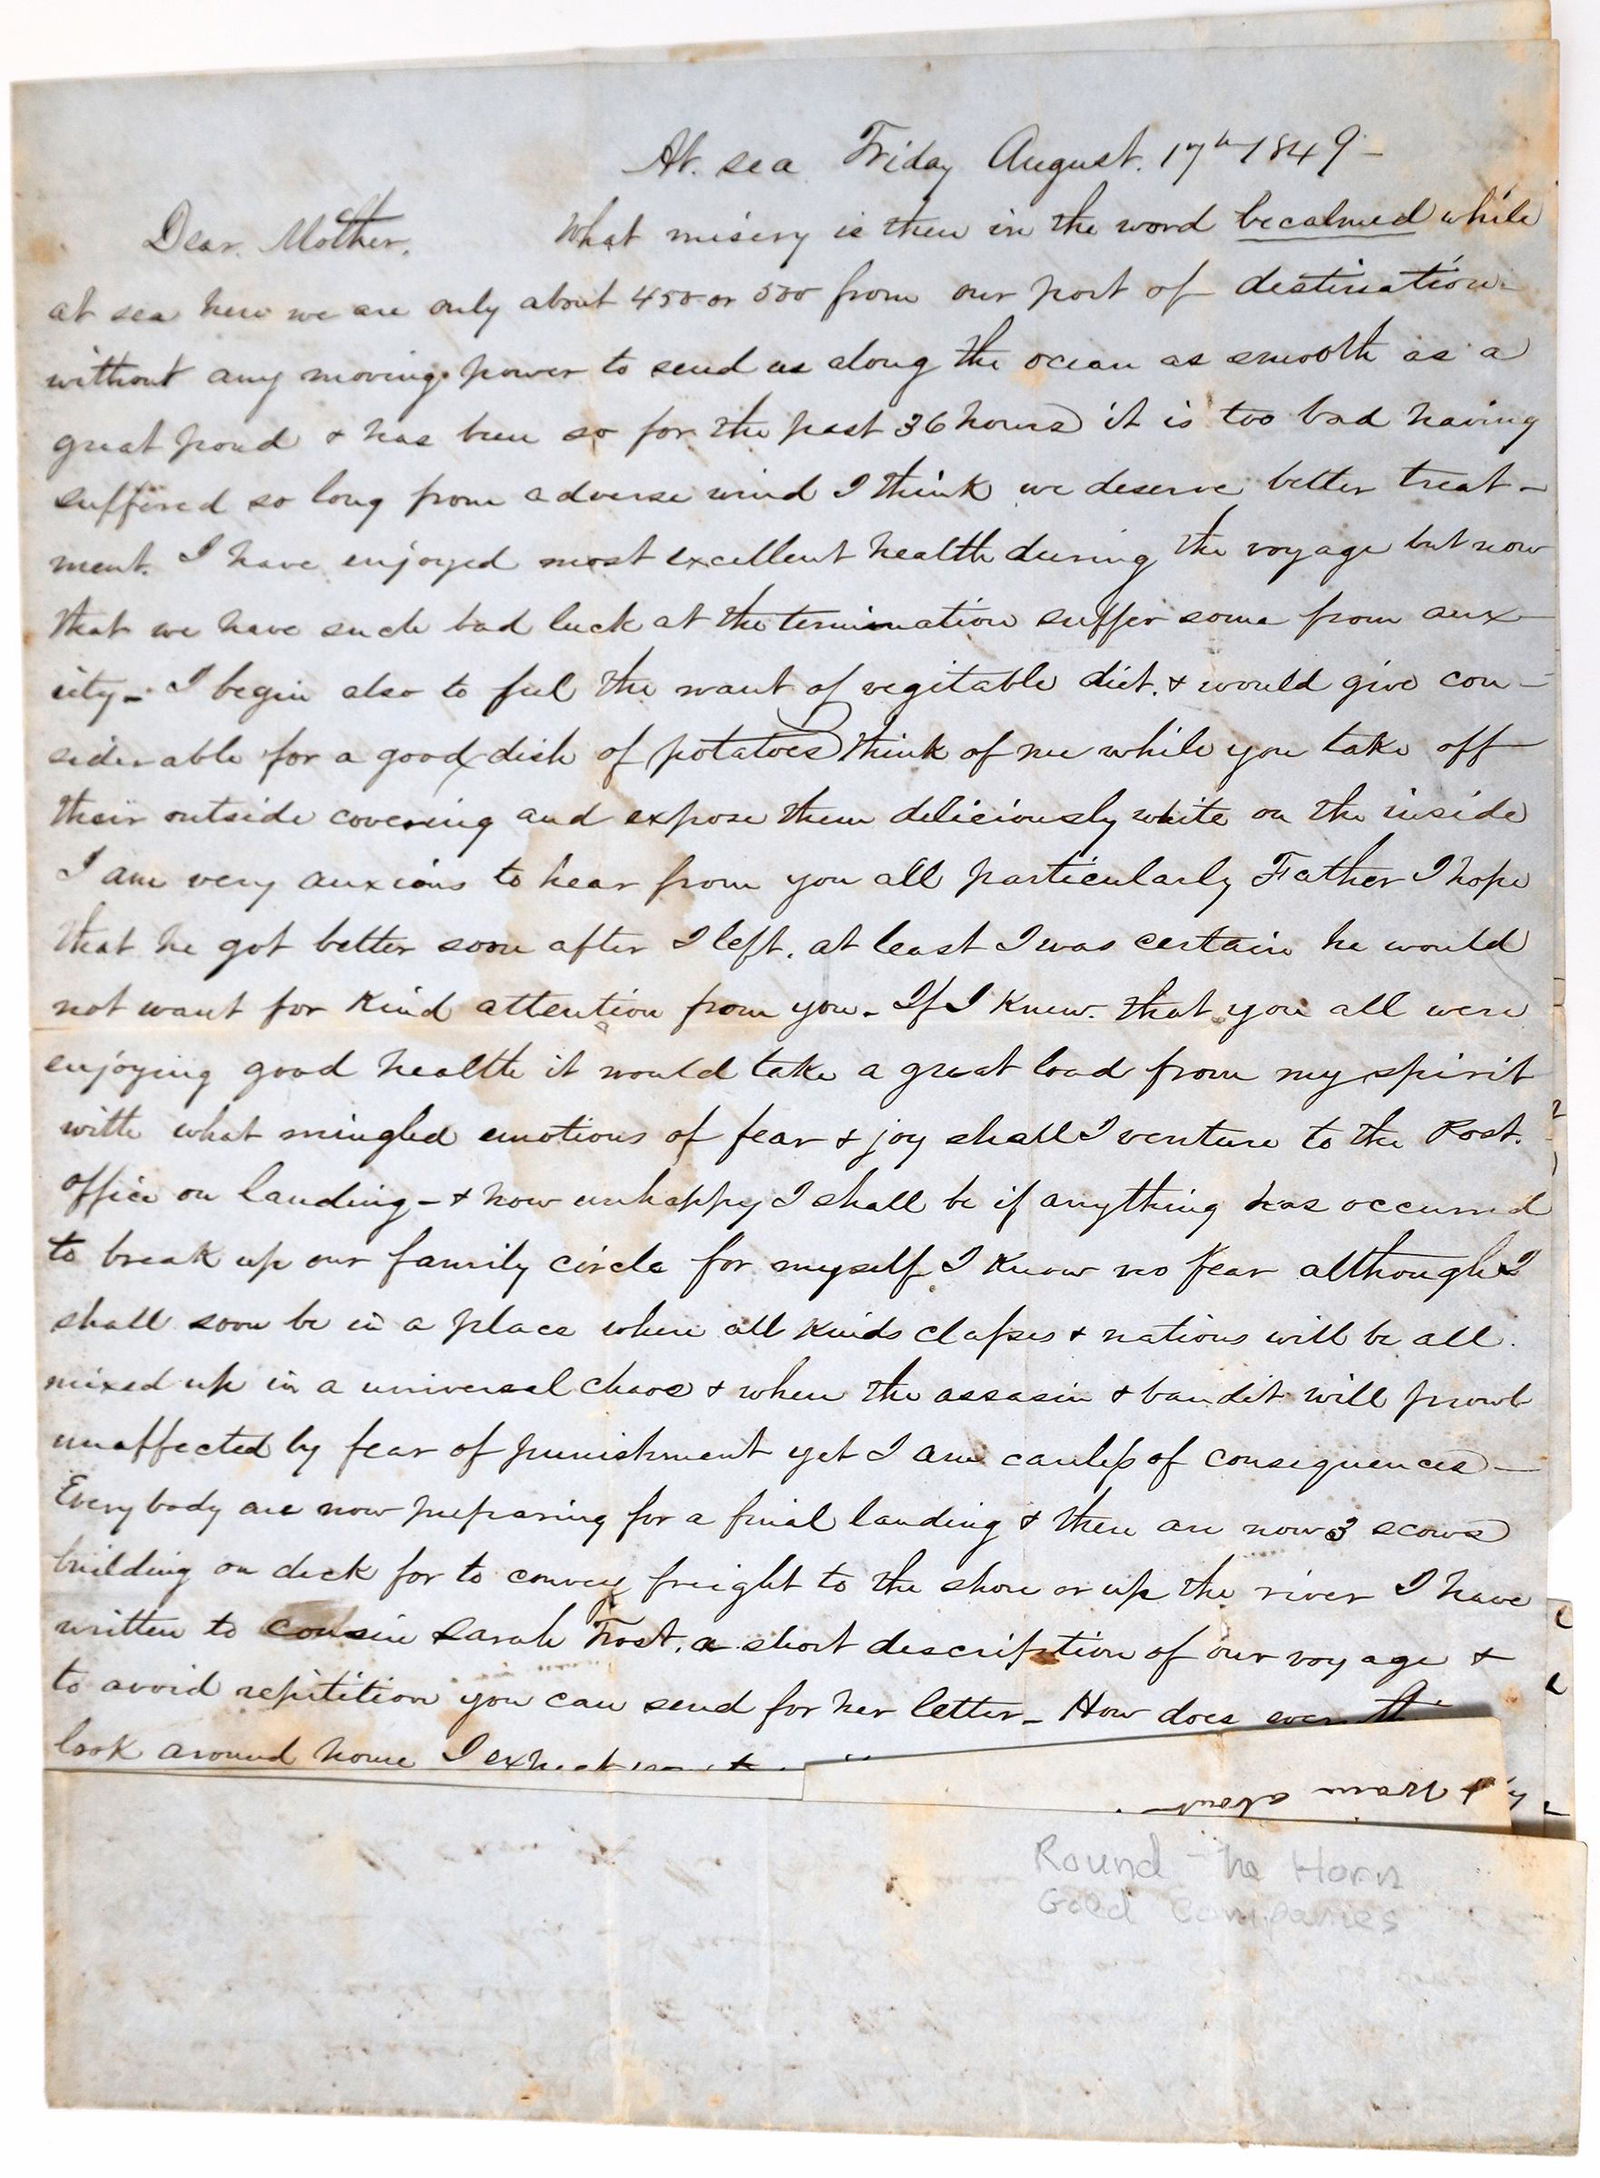 At. sea Friday August. 17th 1849-
Dear. Mother. What misery is there in the word becalmed while
at sea here we are only about 450 or 500 from our port of destination-
without any moving power to send us along the ocean as smooth as a
great pond & has been so for the past 36 hours it is too bad having
suffered so long from adverse wind I think we deserve better treat-
ment. I have enjoyed most excellent health during the voyage but now
that we have such bad luck at the termination suffer some from anx-
iety- I begin also to feel the want of vegitable diet. & would give con-
siderable for a good dish of potatoes think of me while you take off
their outside covering and expose them deliciously white on the inside
I am very anxious to hear from you all particularly Father I hope
that he got better soon after I left. at least I was certain he would
not want for kind attention from you- If I knew. that you all were
enjoying good health it would take a great load from my spirit
with what mingled emotions of fear & joy shall I venture to the Post.
office on landing- & how unhappy I shall be if anything has occurred
to break up our family circle for myself I know no fear although I
shall soon be in a place where all kinds classes & nations will be all.
mixed up in a universal chaos & where the assasin & bandit will prowl
unaffected by fear of punishment yet I am careless of consequences-
Every body are now preparing for a final landing & there are now 3 scows
building on deck for to convey freight to the shore or up the river I have
written to cousin Sarah Frost. a short description of our voyage &
to avoid repitition you can send for her letter- How does
look around home I expect
& Warm about
Round the Horn
Gold Companies